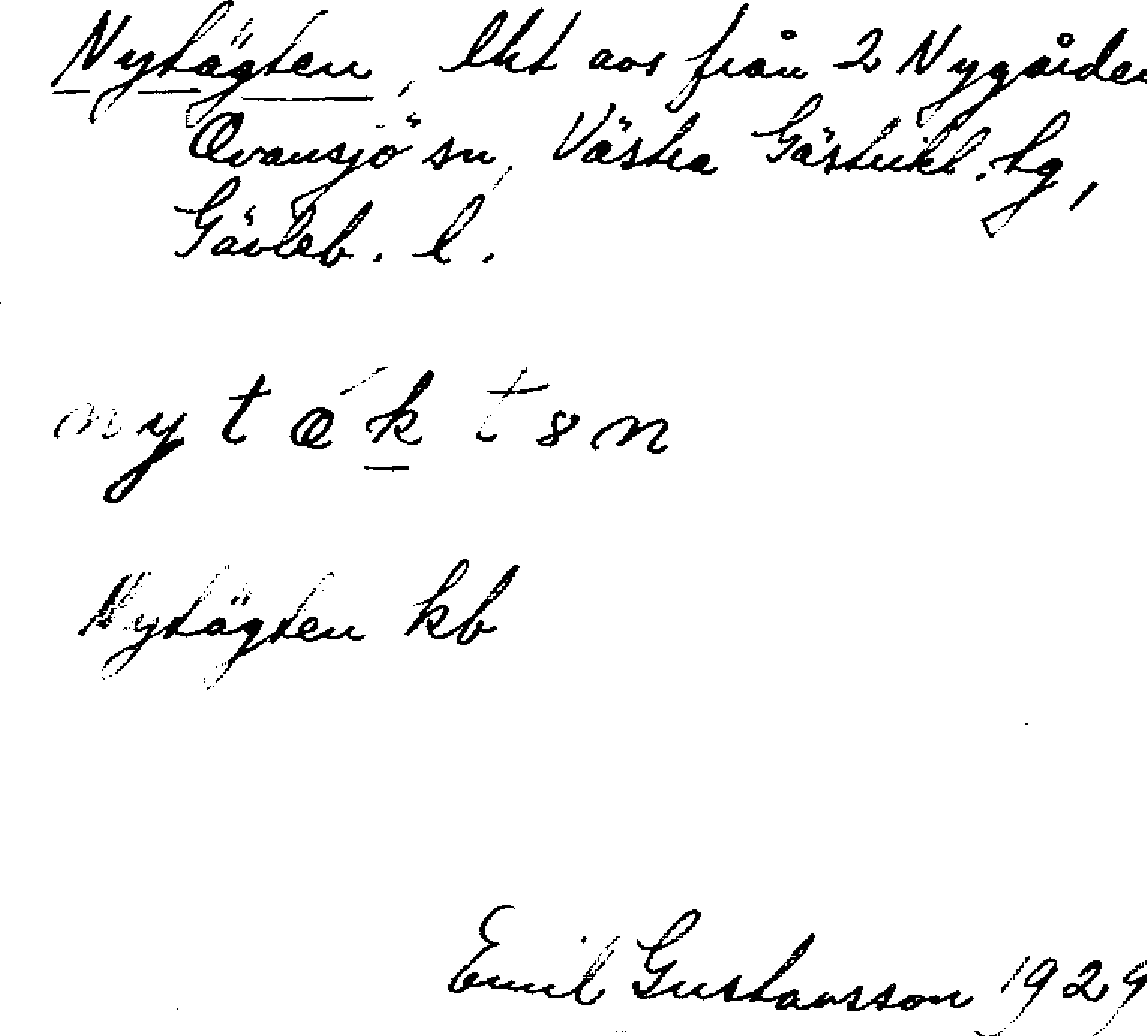 Nytägten, lht avs från 2 Nygården
Ovansjö sn, Västra Gästrikl. tg,
Gävleb. l.
nytǽktən
Nytägten kb
Emil Gustavsson 1929